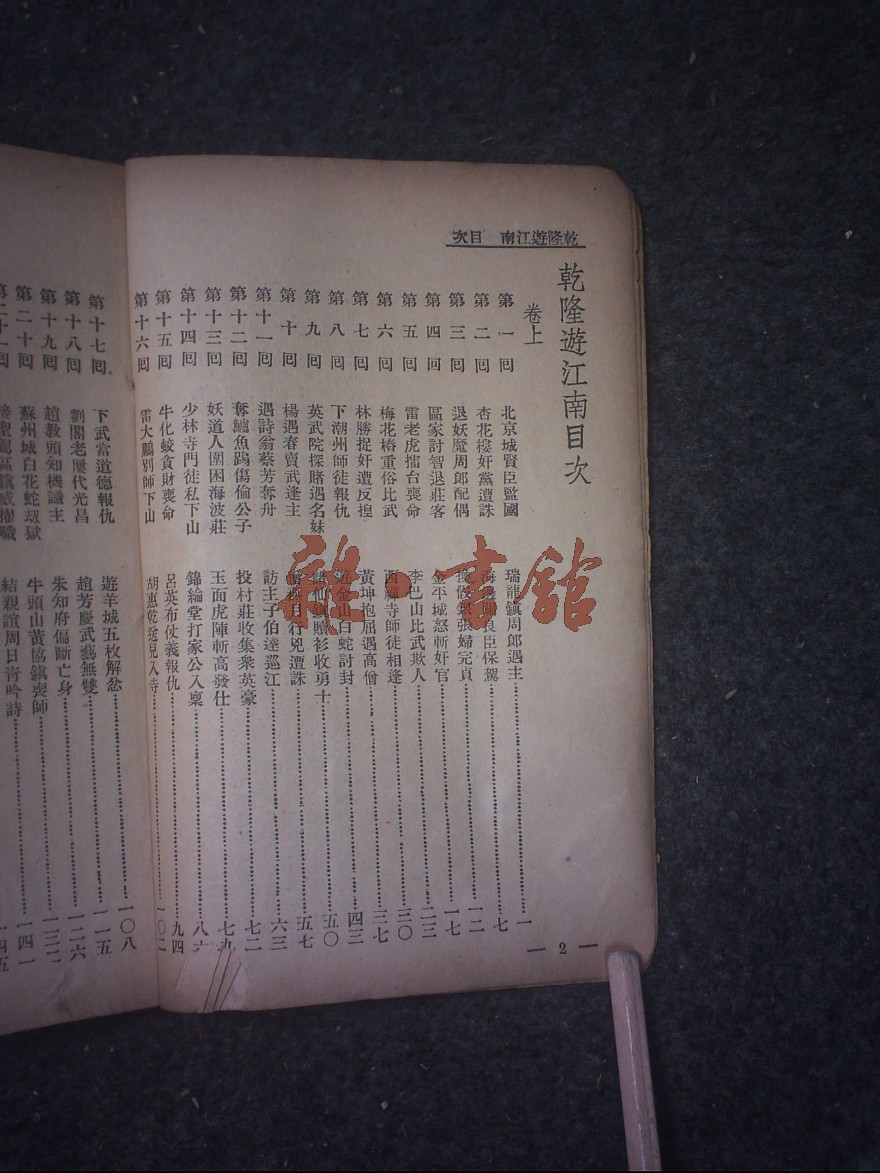 乾隆遊江南　目次
乾隆遊江南目次
卷上
第一回　北京城賢臣監國　瑞龍鎮周郎遇主　一
第二回　杏花樓奸黨遭誅　海邊關良臣保駕　七
第三回　退妖魔周郎配偶　換假銀張婦完貞　一二
第四回　區家討智退莊客　金平城怒斬奸官　一七
第五回　雷老虎擂台喪命　李巴山比武欺人　二三
第六回　梅花樁重俗比武　西禪寺師徒相逢　三〇
第七回　林勝捉奸遭反捏　黃坤抱屈遇高僧　三七
第八回　下潮州師徒報仇　遊金山白蛇討封　四三
第九回　英武院探賭遇名妹　仙鎮贈衫收勇士　五〇
第十回　楊遇春賣武逢主　僧親目行兇遭誅　五七
第十一回　遇詩翁蔡芳奪舟　訪主子伯達巡江　六三
第十二回　奪鱸魚踢傷倫公子　投村莊收集衆英豪　七二
第十三回　妖道人圍困海波莊　玉面虎陣斬高發仕　七九
第十四回　少林寺門徒私下山　錦綸堂打家公入稟　八六
第十五回　牛化蛟貪財喪命　呂英布仗義報仇　九四
第十六回　雷大鵬別師下山　胡惠乾送兒入寺　一〇二
第十七回　下武當道德報仇　遊羊城五枚解忿　一〇八
第十八回　劉閣老歷代光昌　趙芳慶武藝無雙　一一五
第十九回　趙敎頭知機識主　朱知府偏斷亡身　一二六
第二十回　蘇州城白花蛇刼獄　牛頭山黃協鎮喪師　一三二
第二十一回　接聖駕區鎮威擢職　結親誼周日靑吟詩　一四一
一四五
— 2 —
雜·書館